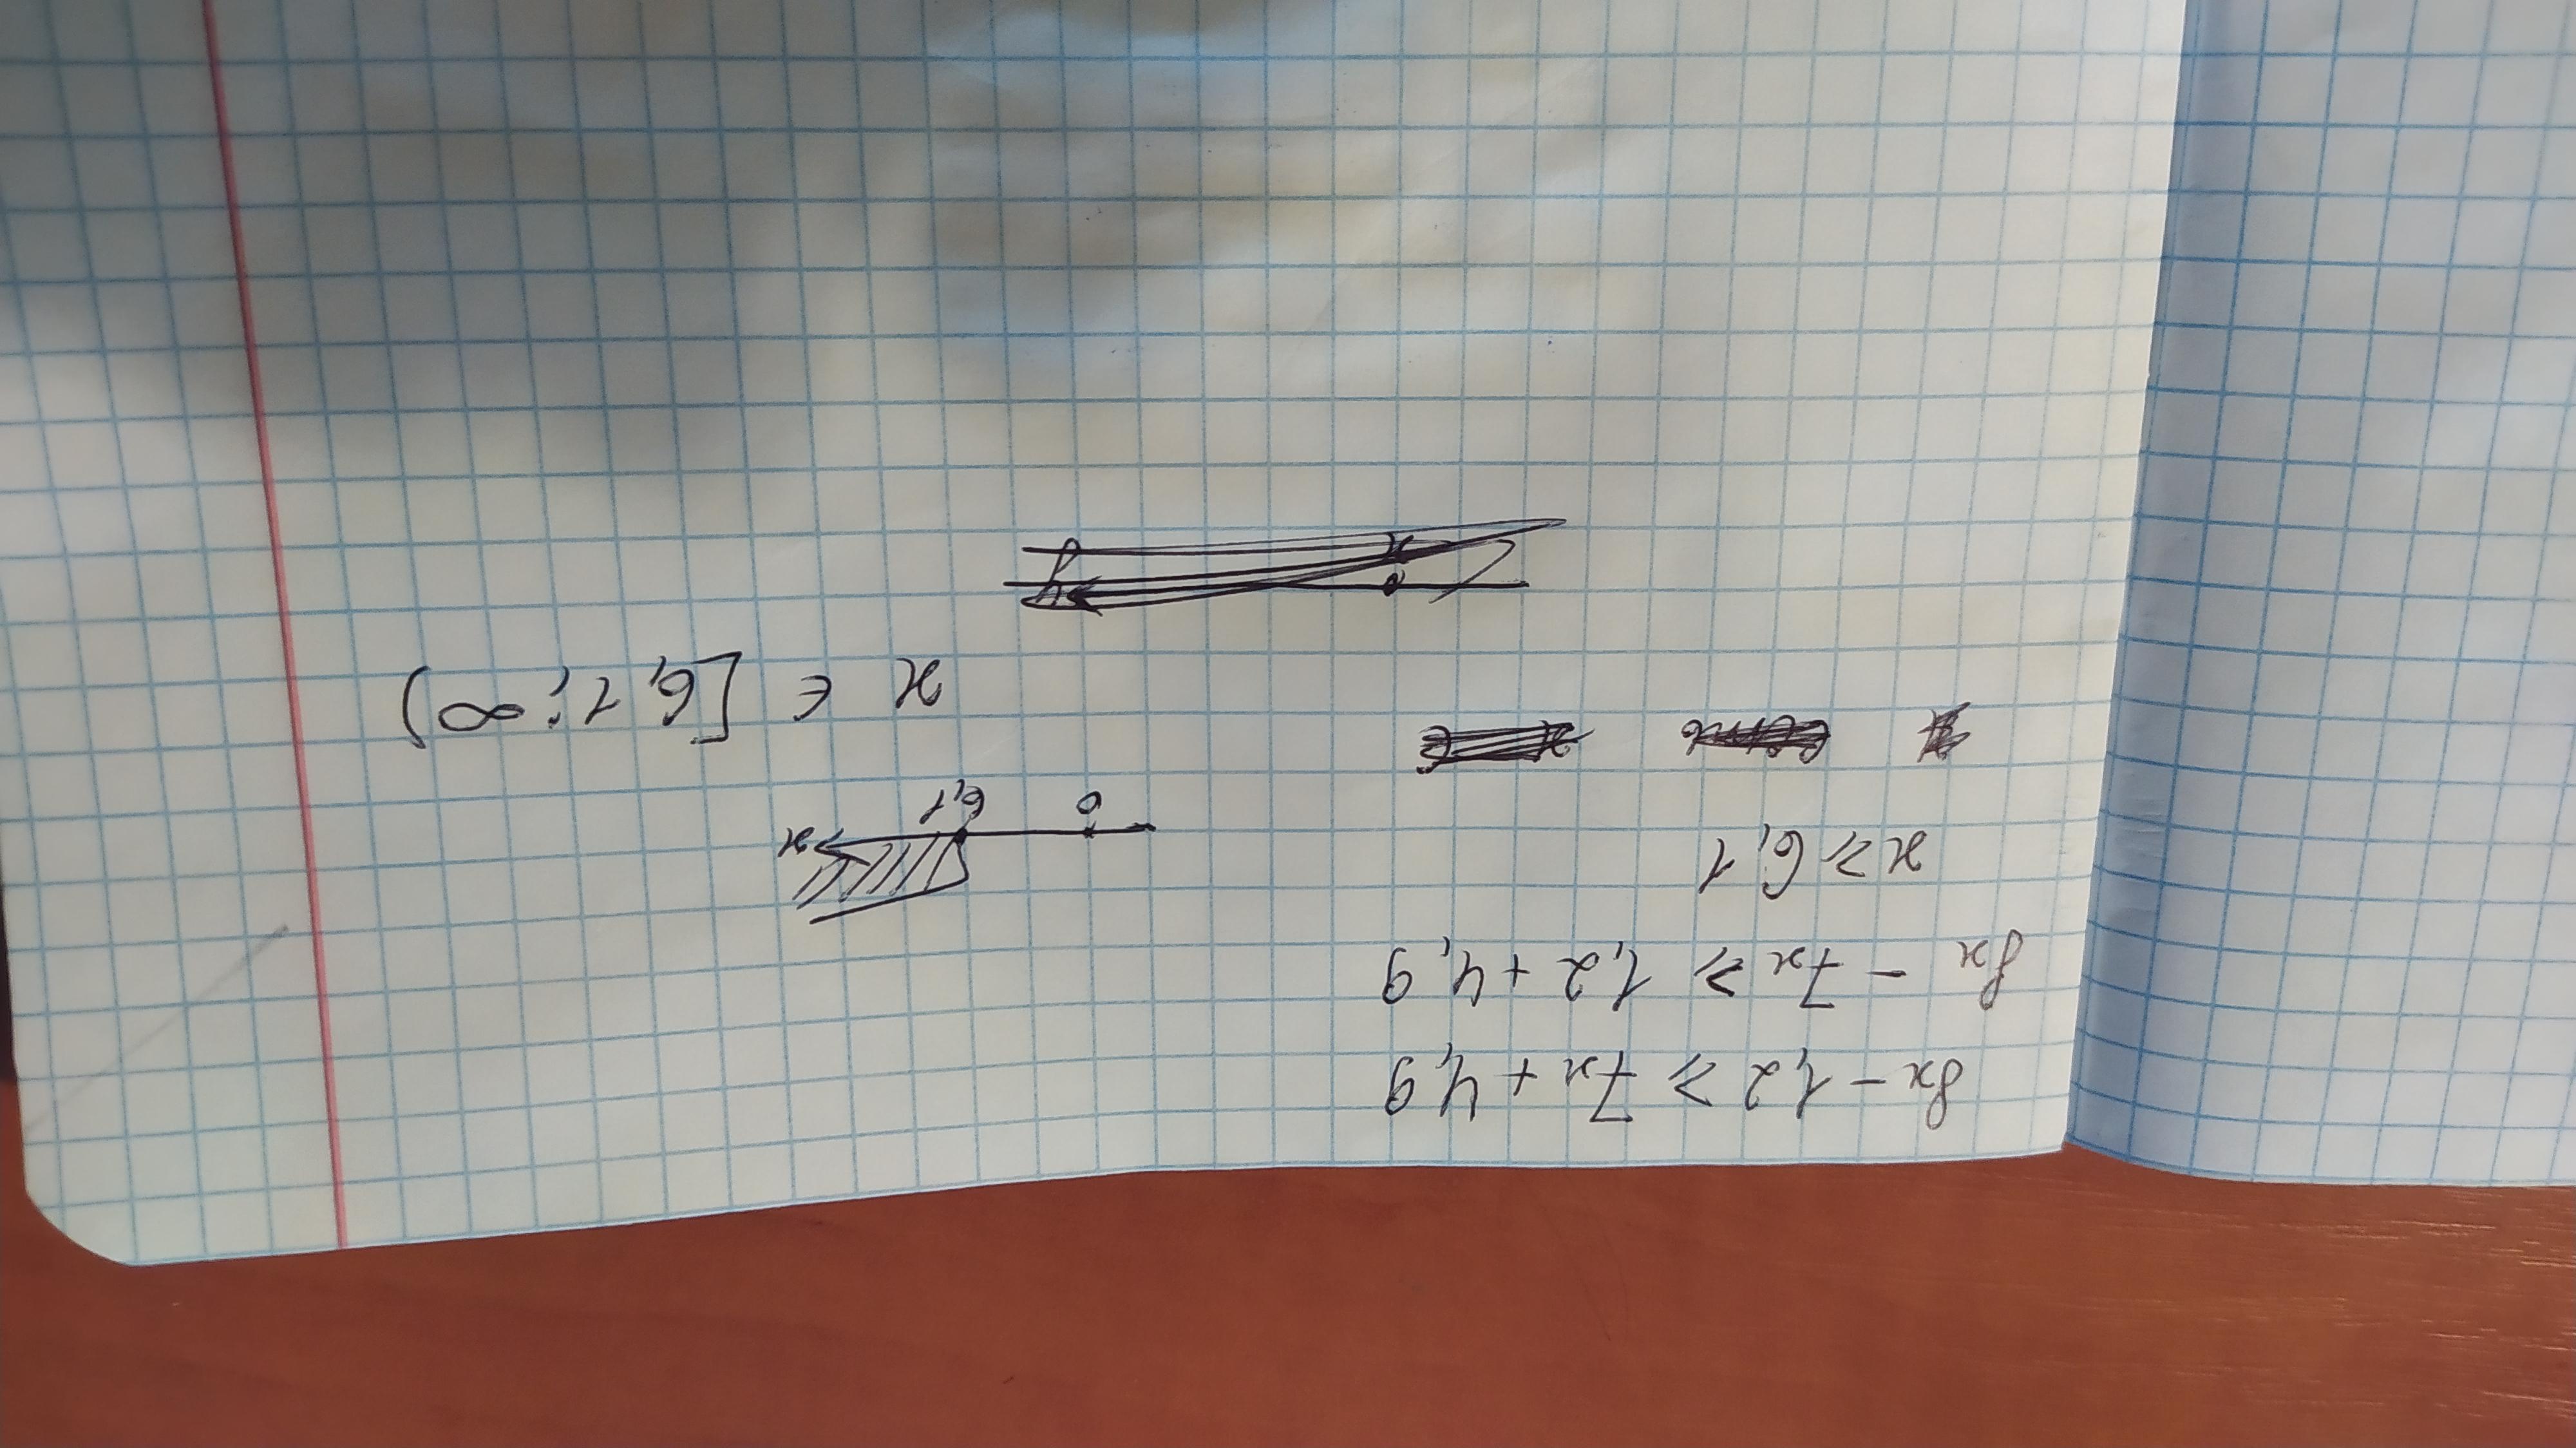 8x - 1,2 ⩾ 7x + 4,9
8x - 7x ⩾ 1,2 + 4,9
x ⩾ 6,1
0 6,1 x
x ∈ [6,1; ∞)